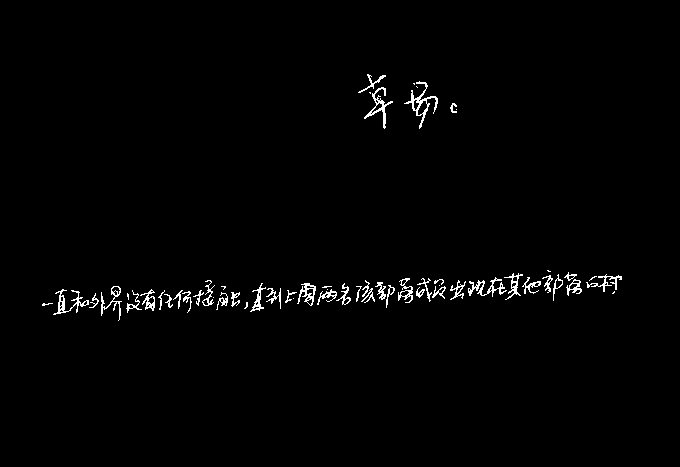 草易。
一直和外界没有任何接触,直到上周两名该部落成员出现在其他部落的村